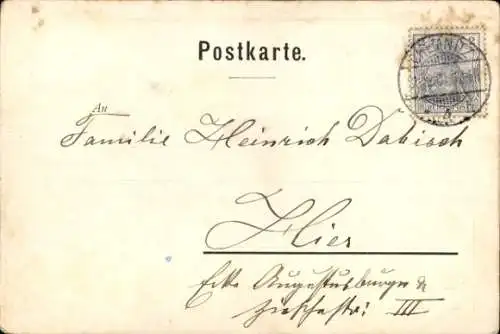 Postkarte.
An
Familie Heinrich Dabisch
Hier
Ecke Augustusburger &
Zieschestr: III